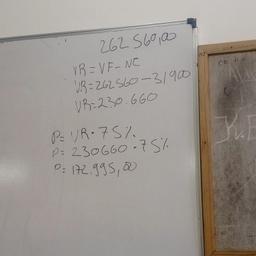 262560,00
VR = VF - NC
VR = 262560 - 31900
VR = 230.660
P = VR . 75%
P = 230660 . 75%
P = 172.995,00